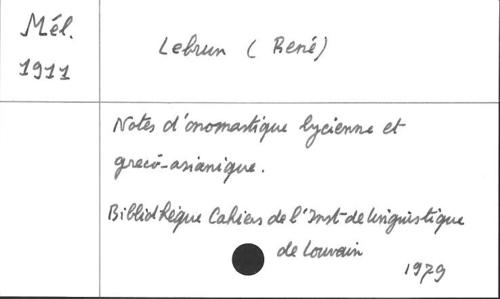 Mél.
1911
Lebrun (René)
Notes d'onomastique lycienne et
gréco-asianique.
Bibliothèque Cahiers de l'Inst-de linguistique
de Louvain
1979